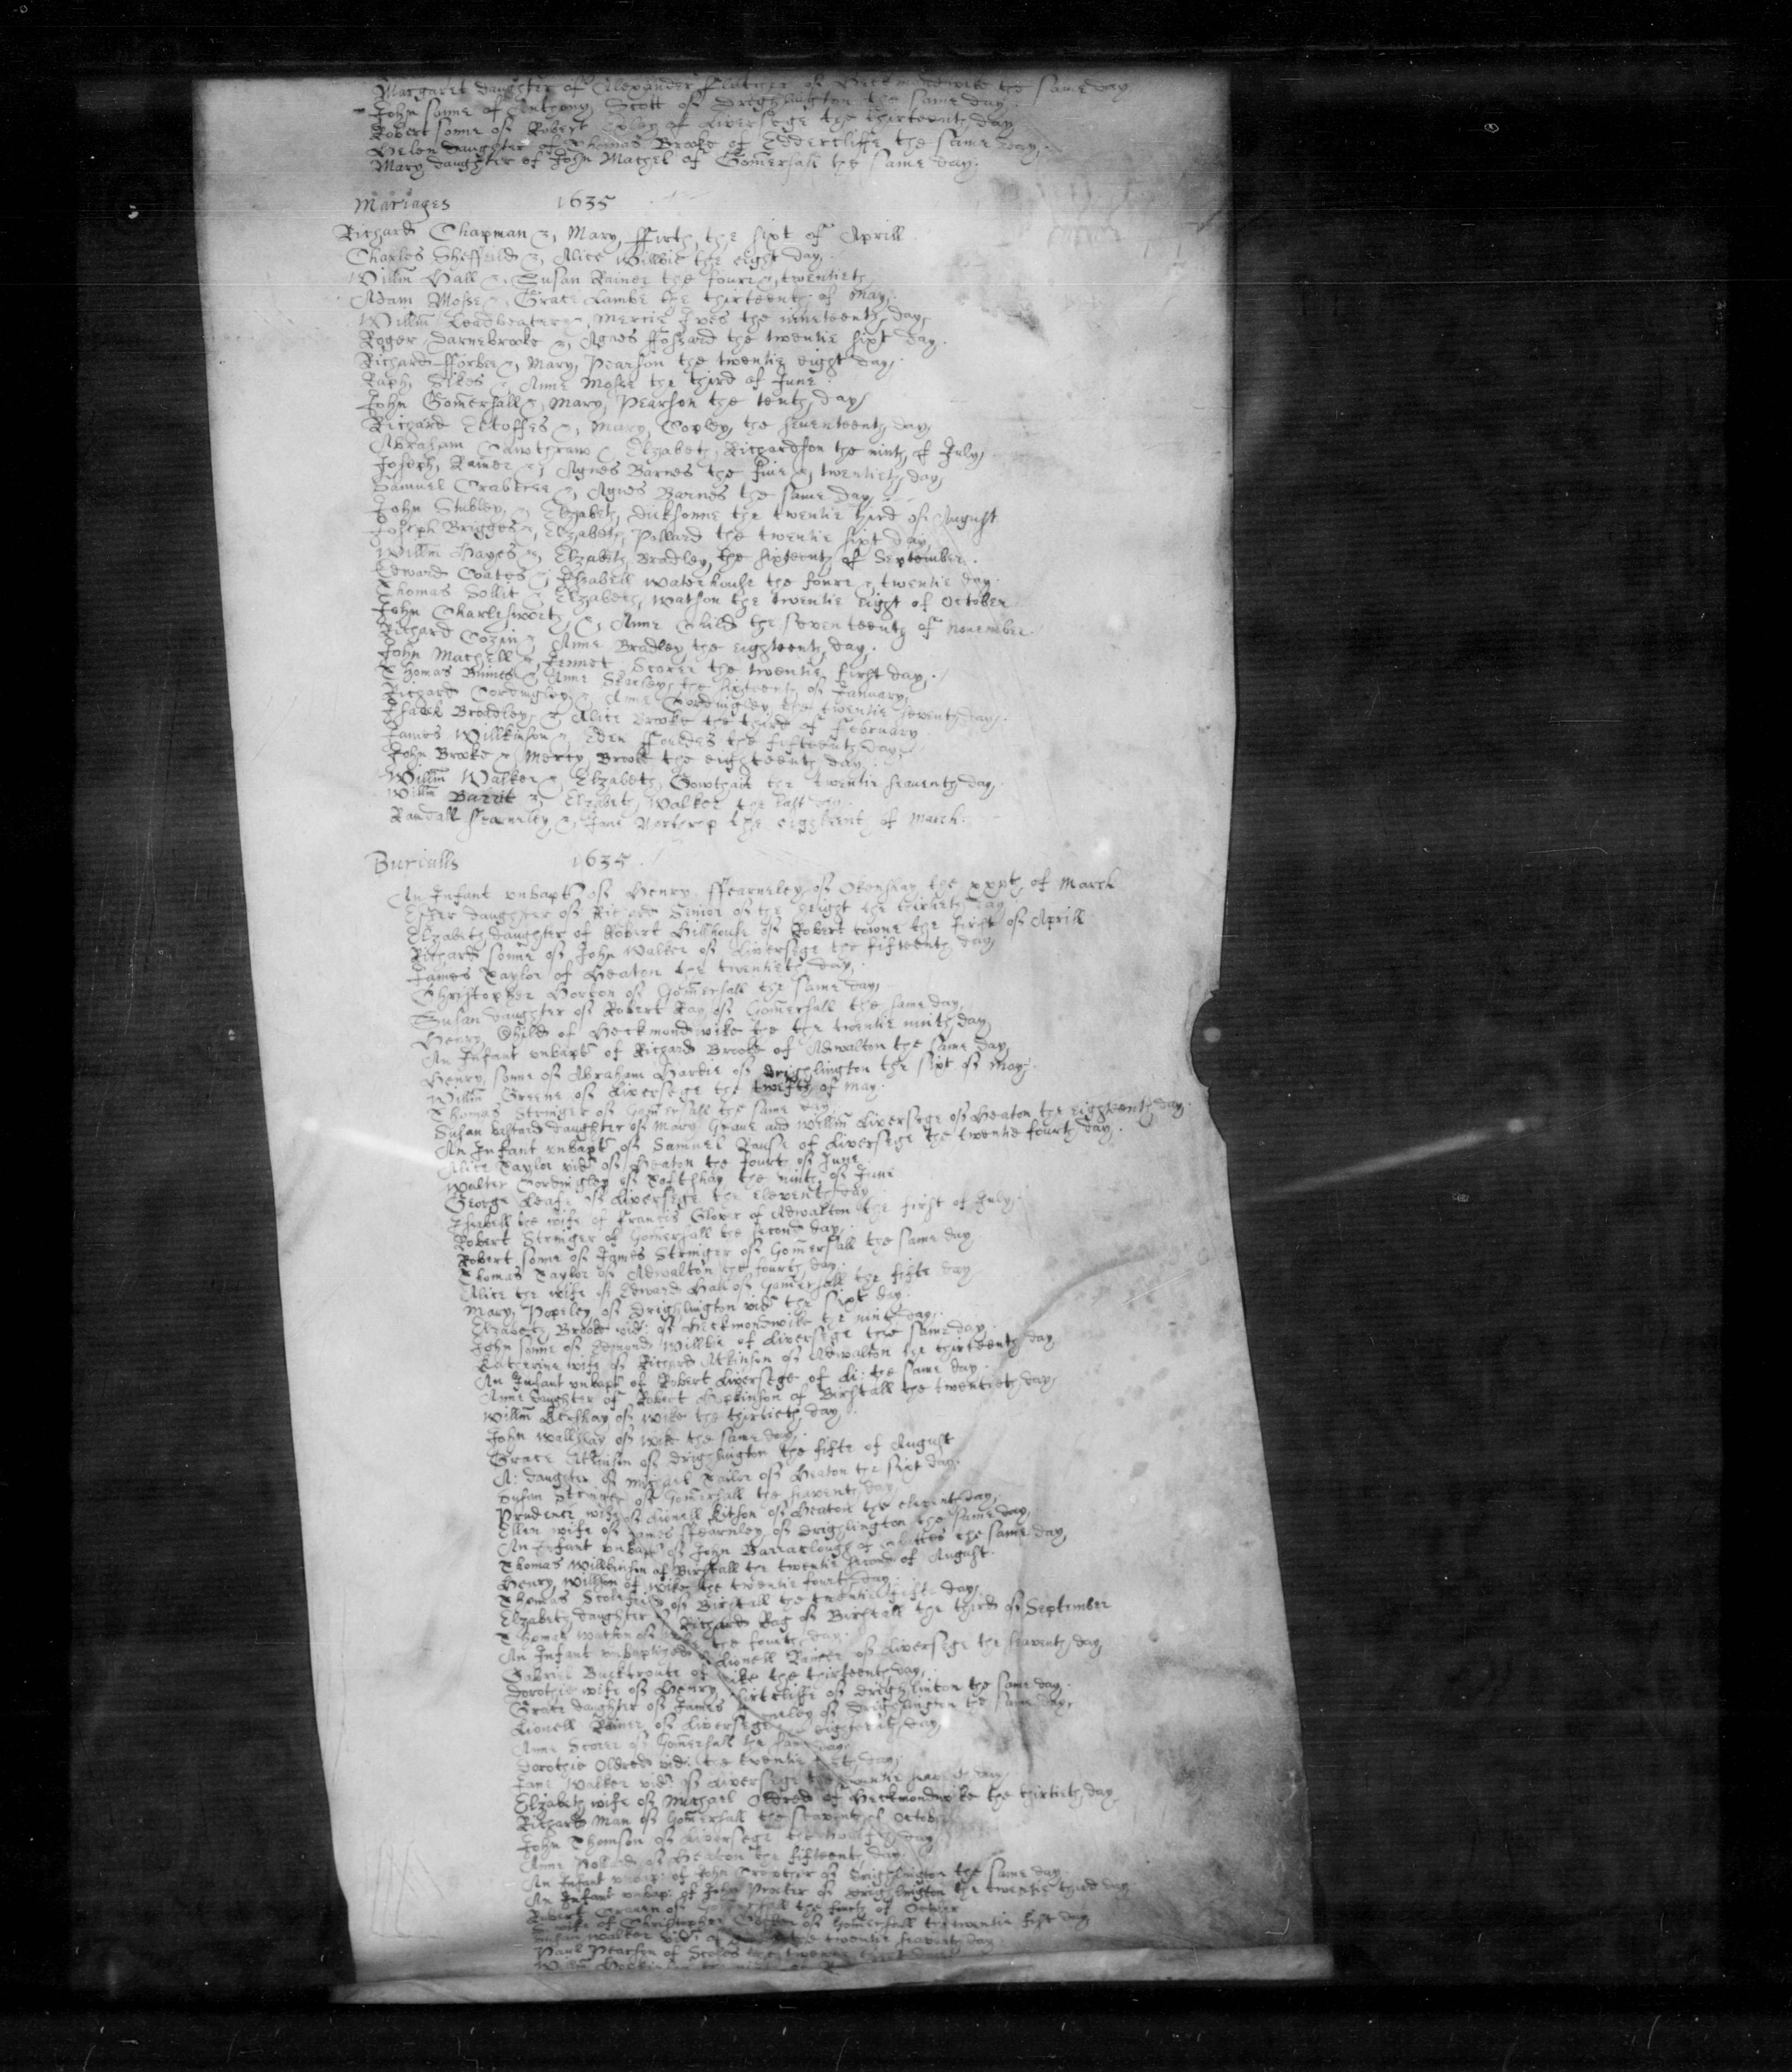 Margaret daughter of Alexander of Heckmondwike the same day
John sonne of Anthony Scott of Drighlington the same day
Robert sonne of Robert of Liversege the thirteenth day
Helen daughter of Thomas Brooke of Eddercliffe the same day
Mary daughter of John Machel of Gomersall the same day.
Mariages 1635
Richard Chapman & Mary ffirth, the sixt of Aprill
Charles Sheffeild & Alice Willbie the eight day.
Willm Hall & Susan Rainer the foure & twentieth
Adam Mosse & Grace Lambe the thirteenth of May.
Willm Leadbeater & Mercie Ives the nineteenth day
Roger Darnebrooke & Agnes ffossard the twentie sixt day.
Richard & Mary Pearson the twentie eight day.
Raph Sikes & Anne Mosse the third of June.
John Gomersall & Mary Pearson the tenth day
Richard & Mary Copley the seventeenth day
Abraham Cawthraw & Elzabeth Richardson the ninth of July
Joseph Rainer & Agnes Barnes the five & twentieth day
Samuel Crabtree & Agnes Barnes the same day
John Stubley & Elzabeth Dicksonne the twentie third of August
Joseph Brigges & Elzabeth Pollard the twentie sixt day
Willm Hayes & Elzabeth Bradley the sixteenth of September.
Edward Coates & Isabell Waterhouse the foure & twentie day.
Thomas Sollit & Elzabeth Watson the twentie eight of October
John Charlesworth & Anne Child the seventeenth of November
Richard Cozin & Anne Bradley the eighteenth day.
John Machell & Jennet Scorer the twentie first day.
Thomas & Anne the sixteenth of January
Richard Cordingley & Anne Cordingley the twentie seventh day.
Isaack Bradley & Alice Brooke the third of February
James Willkinson & Eden ffoxdes the fifteenth day
John Brooke & Mercy Brooke the eighteenth day.
Willm Walker & Elzabeth Gowthait the twentie seaventh day
Willm Barrit & Elzabeth Walker the last day.
Randall ffearneley & Jane Northrop the eighteent of March.
Burialls 1635.
An Infant unbapt of Henry ffearneley of Okenshay the xxxth of March
Ester daughter of Richard Senior of the height the thirtieth day
Elzabeth daughter of Robert Hillhouse of Robert towne the first of Aprill
Richard sonne of John Walker of Liversege the fifteenth day
James Taylor of Heaton the twentieth day.
Christopher Horton of Gomersall the same day
Susan daughter of Robert Ray of Gomersall the same day
Henry Child of Heckmondwike the the twentie ninth day
An Infant unbapt of Richard Brooke of Adwalton the same day
Henry sonne of Abraham Hartie of Drighlington the sixt of May.
Willm Greene of Liversege the twelfth of May.
Thomas Stringer of Gomersall the same day
Susan bastard daughter of Mary Grave and Willm Liversege of Heaton the eighteenth day.
An Infant unbapt of Samuel of Liversege the twentie fourth day.
Alice Taylor vid of Heaton the fourth of June.
Walter Cordingley of Toftshay the ninth of June
George Leafe of Liversege the eleventh day
Isabell the wife of Francis Glover of Adwalton the first of July.
Robert Stringer of Gomersall the second day.
Robert sonne of James Stringer of Gomersall the same day
Thomas Taylor of Adwalton the fourth day.
Alice the wife of Edward Hall of Gomersall the fifte day
Mary Popeley of Drighlington vid the sixt day.
Elzabeth Brooke vid. of Heckmondwike the ninth day.
John sonne of Edmond Willbie of Liversege the same day.
Katherine wife of Richard Atkinson of Adwalton the thirteenth day
An Infant unbapt of Robert Liversege of Li: the same day.
Anne daughter of Robert Hopkinson of Birstall the twentieth day
Willm Kershay of Wike the thirtieth day.
John Wallshay of Wike the same day.
Grace Atkinson of Drighlington the fifte of August
A: daughter of Michael Tailor of Heaton the sixt day.
Susan Stringer of Gomersall the seaventh day
Prudence wife of Lionell Kitson of Heaton the eleventh day
Ellen wife of James ffearnley of Drighlington the same day
An Infant unbapt of John Barraclough of the same day
Thomas Willkinson of Birstall the twentie second of August.
Henry Willson of Wike the twentie fourth day.
Thomas Scolefeild of Birstall the twentie fifte day.
Elzabeth daughter of Richard Rag of Birstall the third of September
Thomas Watson of the fourth day.
An Infant unbaptized of Lionell Rainer of Liversege the seaventh day
Gabriel Bucktroute of Wike the thirteenth day.
Dorothie wife of Henry of Drighlinton the same day.
Grace daughter of James of Drighlington the same day
Lionell Rainer of Liversege the day
Anne Scorer of Gomersall the same day
Dorothie Oldred vid: the twentie day
Jane Walker vid of Liversege the twentie seaventh day
Elzabeth wife of Michael Oldred of Heckmondwike the thirtieth day.
Richard Man of Gomersall the seaventh of October
John Thomson of Liversege the day
Anne Pollard of Heaton the fifteenth day.
An Infant unbap: of John Crowther of Drighlington the same day.
An Infant unbap: of John Procter of Drighlington the twentie third day
Robert of Gomersall the of October
wife of Christopher of Gomersall the twentie day
Walker vid: of the twentie seaventh day
Paul Pearson of Scoles the day
Willm